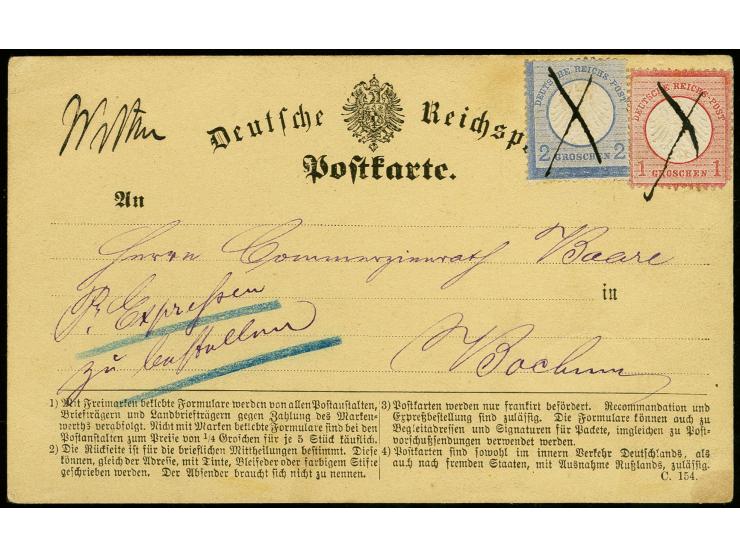 Witten
Deutsche Reichsp
Postkarte.
DEUTSCHE REICHS-POST
2 GROSCHEN 2
DEUTSCHE REICHS-POST
1 GROSCHEN 1
An
Herrn Commerzienrath Baare
in
P. Expressen
zu bestellen
Bochum
1) Mit Freimarken beklebte Formulare werden von allen Postanstalten,
Briefträgern und Landbriefträgern gegen Zahlung des Marken-
werths verabfolgt. Nicht mit Marken beklebte Formulare sind bei den
Postanstalten zum Preise von 1/4 Groschen für je 5 Stück käuflich.
2) Die Rückseite ist für die brieflichen Mittheilungen bestimmt. Diese
können, gleich der Adresse, mit Tinte, Bleifeder oder farbigem Stifte
geschrieben werden. Der Absender braucht sich nicht zu nennen.
3) Postkarten werden nur frankirt befördert. Recommandation und
Expreßbestellung sind zulässig. Die Formulare können auch zu
Begleitadressen und Signaturen für Packete, imgleichen zu Post-
vorschußsendungen verwendet werden.
4) Postkarten sind sowohl im innern Verkehr Deutschlands, als
auch nach fremden Staaten, mit Ausnahme Rußlands, zulässig.
C. 154.